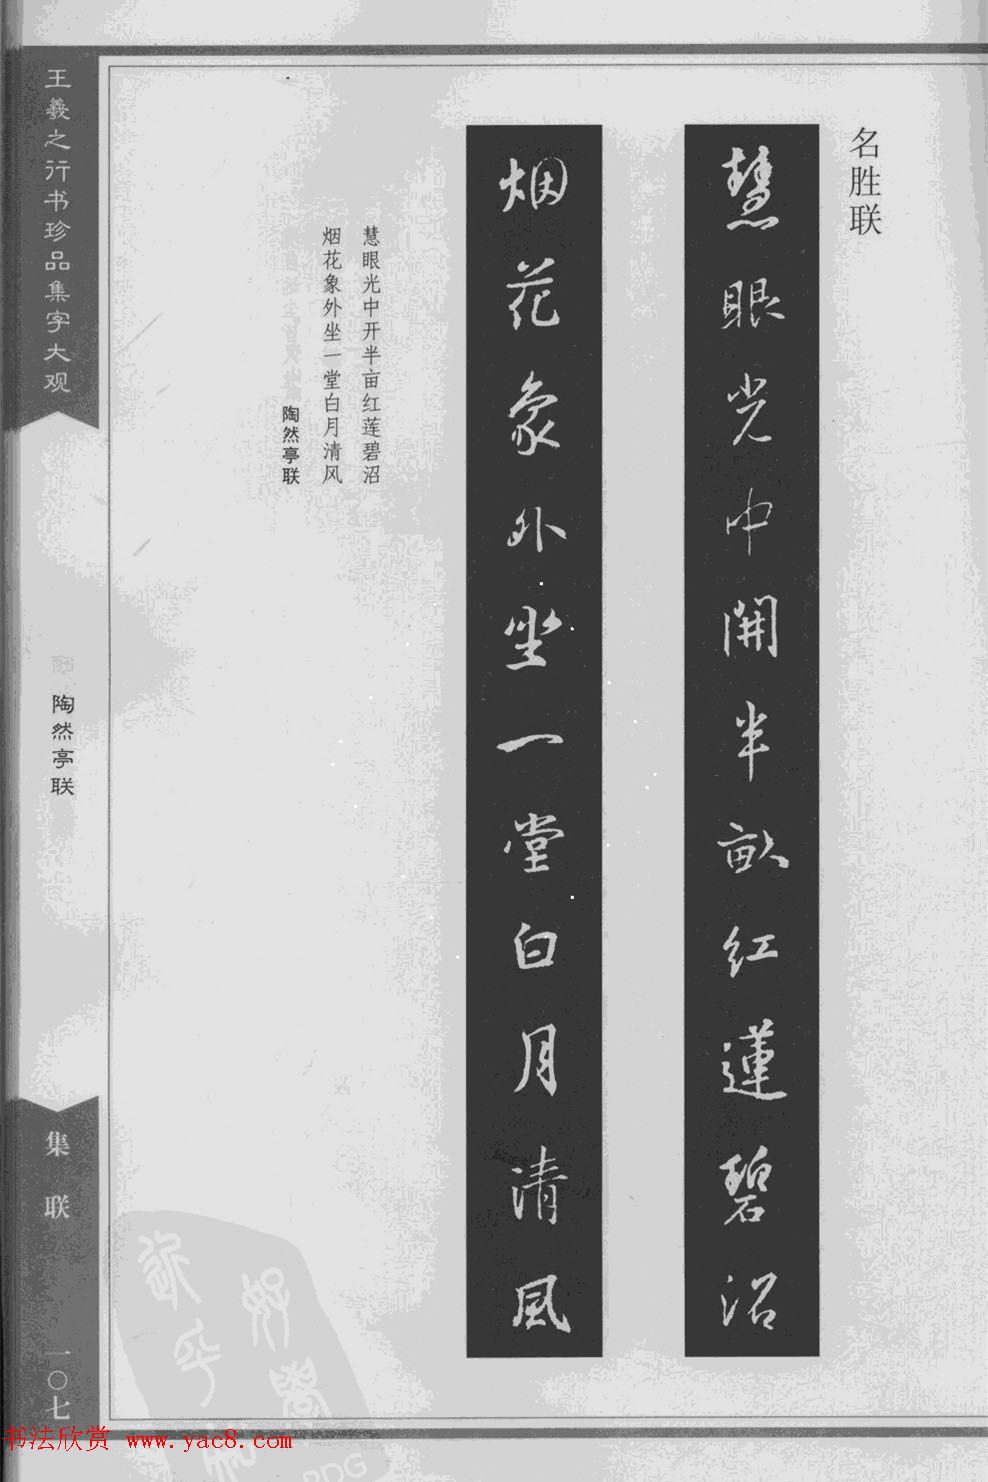 名胜联
慧眼光中開半畝红蓮碧沼
烟花象外坐一堂白月清風
慧眼光中开半亩红莲碧沼
烟花象外坐一堂白月清风
陶然亭联
王羲之行书珍品集字大观
陶然亭联
集联
一〇七
书法欣赏 www.yac8.com
PDG